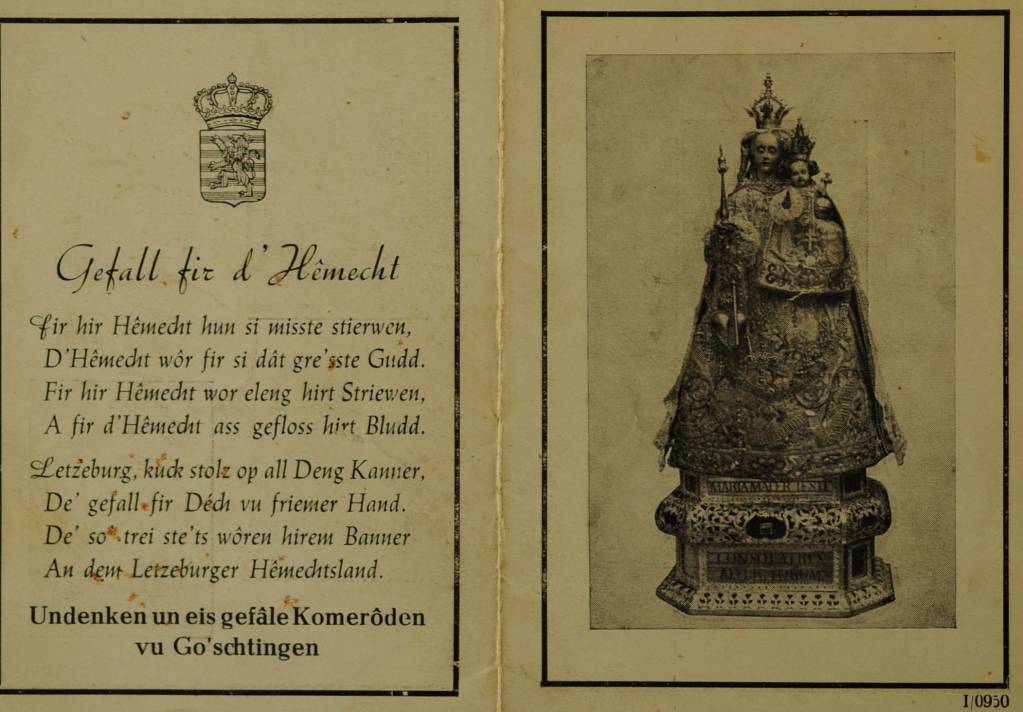 Gefall fir d'Hêmecht
Fir hir Hêmecht hun si misste stierwen,
D'Hêmecht wôr fir si dât gre'sste Gudd.
Fir hir Hêmecht wor eleng hirt Striewen,
A fir d'Hêmecht ass gefloss hirt Bludd.
Letzeburg, kuck stolz op all Deng Kanner,
De' gefall fir Déch vu friemer Hand.
De' so' trei ste'ts wôren hirem Banner
An dem Letzeburger Hêmechtsland.
Undenken un eis gefâle Komerôden
vu Go'schtingen
MARIA MATER IESU
CONSOLATRIX
AFFLICTORUM
I/0950